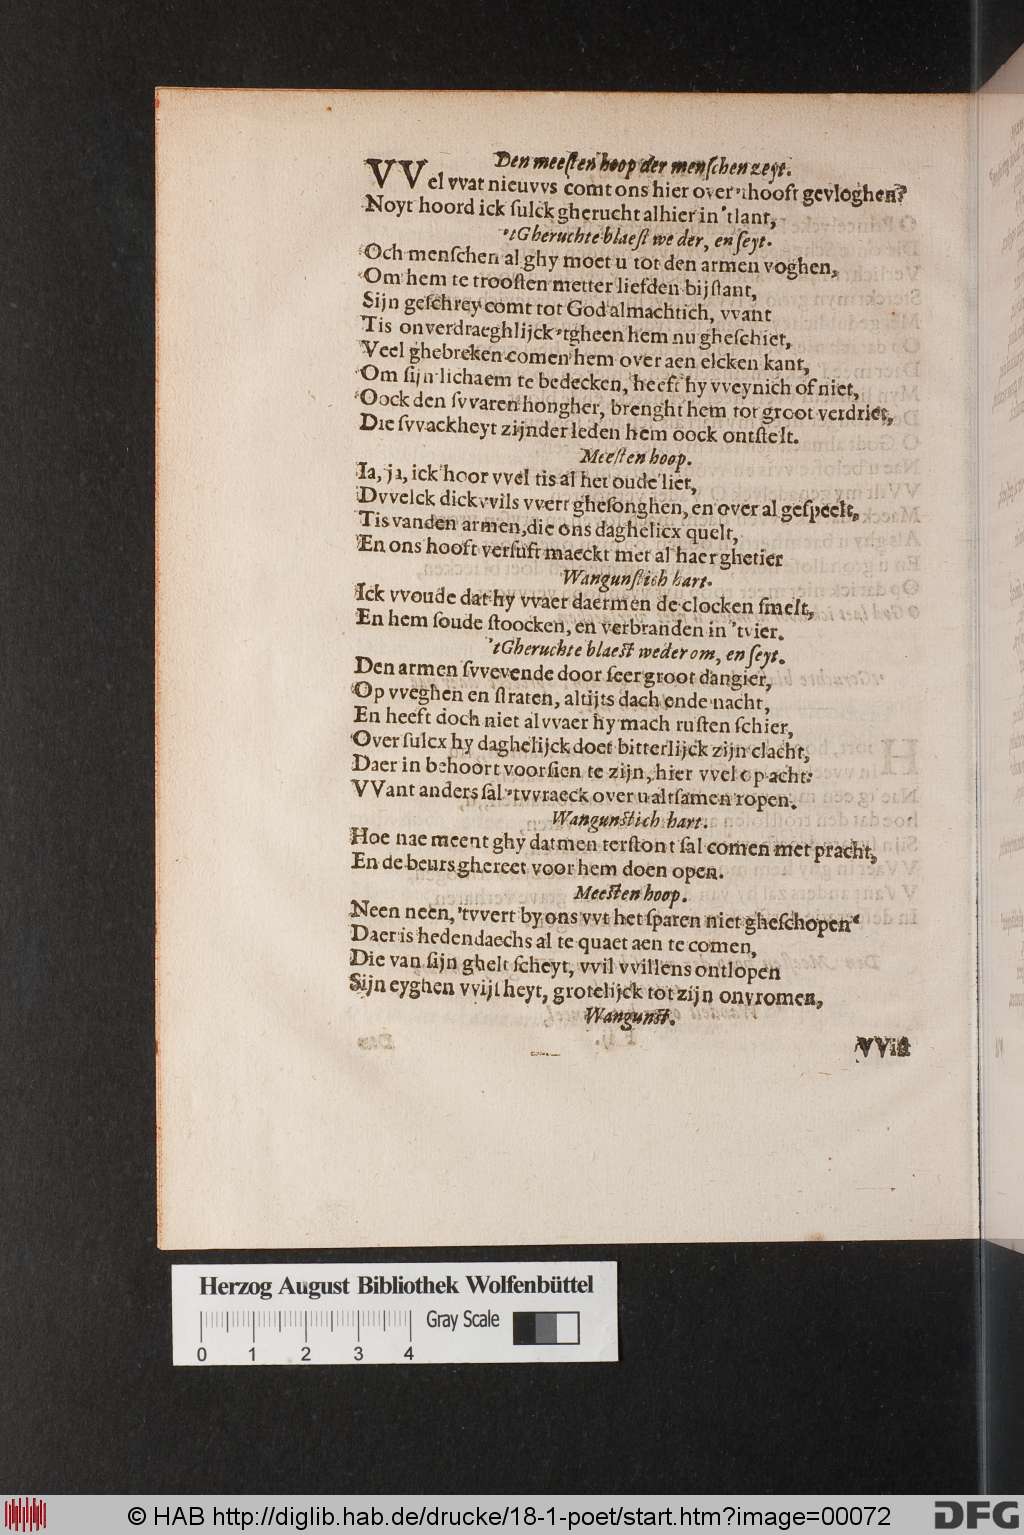 Den meeſten hoop der menſchen zeyt.
VVel vvat nieuvvs comt ons hier over 'thooft gevloghen?
Noyt hoord ick ſulck gherucht alhier in 'tlant,
'tGheruchte blaeſt we der, en ſeyt.
Och menſchen al ghy moet u tot den armen voghen,
Om hem te trooſten metter liefden bijſtant,
Sijn geſchrey comt tot God almachtich, vvant
Tis onverdraeghlijck 'tgheen hem nu gheſchiet,
Veel ghebreken comen hem over aen elcken kant,
Om ſijn lichaem te bedecken, heeft hy vveynich of niet,
Oock den ſvvaren hongher, brenght hem tot groot verdriet,
Die ſvvackheyt zijnder leden hem oock ontſtelt.
Meeſten hoop.
Ia, ja, ick hoor vvel tis al het oude liet,
Dvvelck dickvvils vvert gheſonghen, en over al geſpeelt,
Tis vanden armen, die ons daghelicx quelt,
En ons hooft verſuft maeckt met al haer ghetier
Wangunſtich hart.
Ick vvoude dat hy vvaer daermen de clocken ſmelt,
En hem ſoude ſtoocken, en verbranden in 'tvier.
'tGheruchte blaeſt weder om, en ſeyt.
Den armen ſvvevende door ſeer groot dangier,
Op vveghen en ſtraten, altijts dach ende nacht,
En heeft doch niet al vvaer hy mach ruſten ſchier,
Over ſulcx hy daghelijck doet bitterlijck zijn clacht,
Daer in behoort voorſien te zijn, hier vvel op acht:
VVant anders ſal 'tvvraeck over u altſamen ropen.
Wangunſtich hart.
Hoe nae meent ghy datmen terſtont ſal comen met pracht,
En de beurs ghereet voor hem doen open.
Meeſten hoop.
Neen neen, 'tvvert by ons vvt het ſparen niet gheſchopen
Daer is hedendaechs al te quaet aen te comen,
Die van ſijn ghelt ſcheyt, vvil vvillens ontlopen
Sijn eyghen vvijſheyt, grotelijck tot zijn onvromen,
Wangunſt.
VViſt
Herzog August Bibliothek Wolfenbüttel
Gray Scale
0 1 2 3 4
© HAB http://diglib.hab.de/drucke/18-1-poet/start.htm?image=00072
DFG